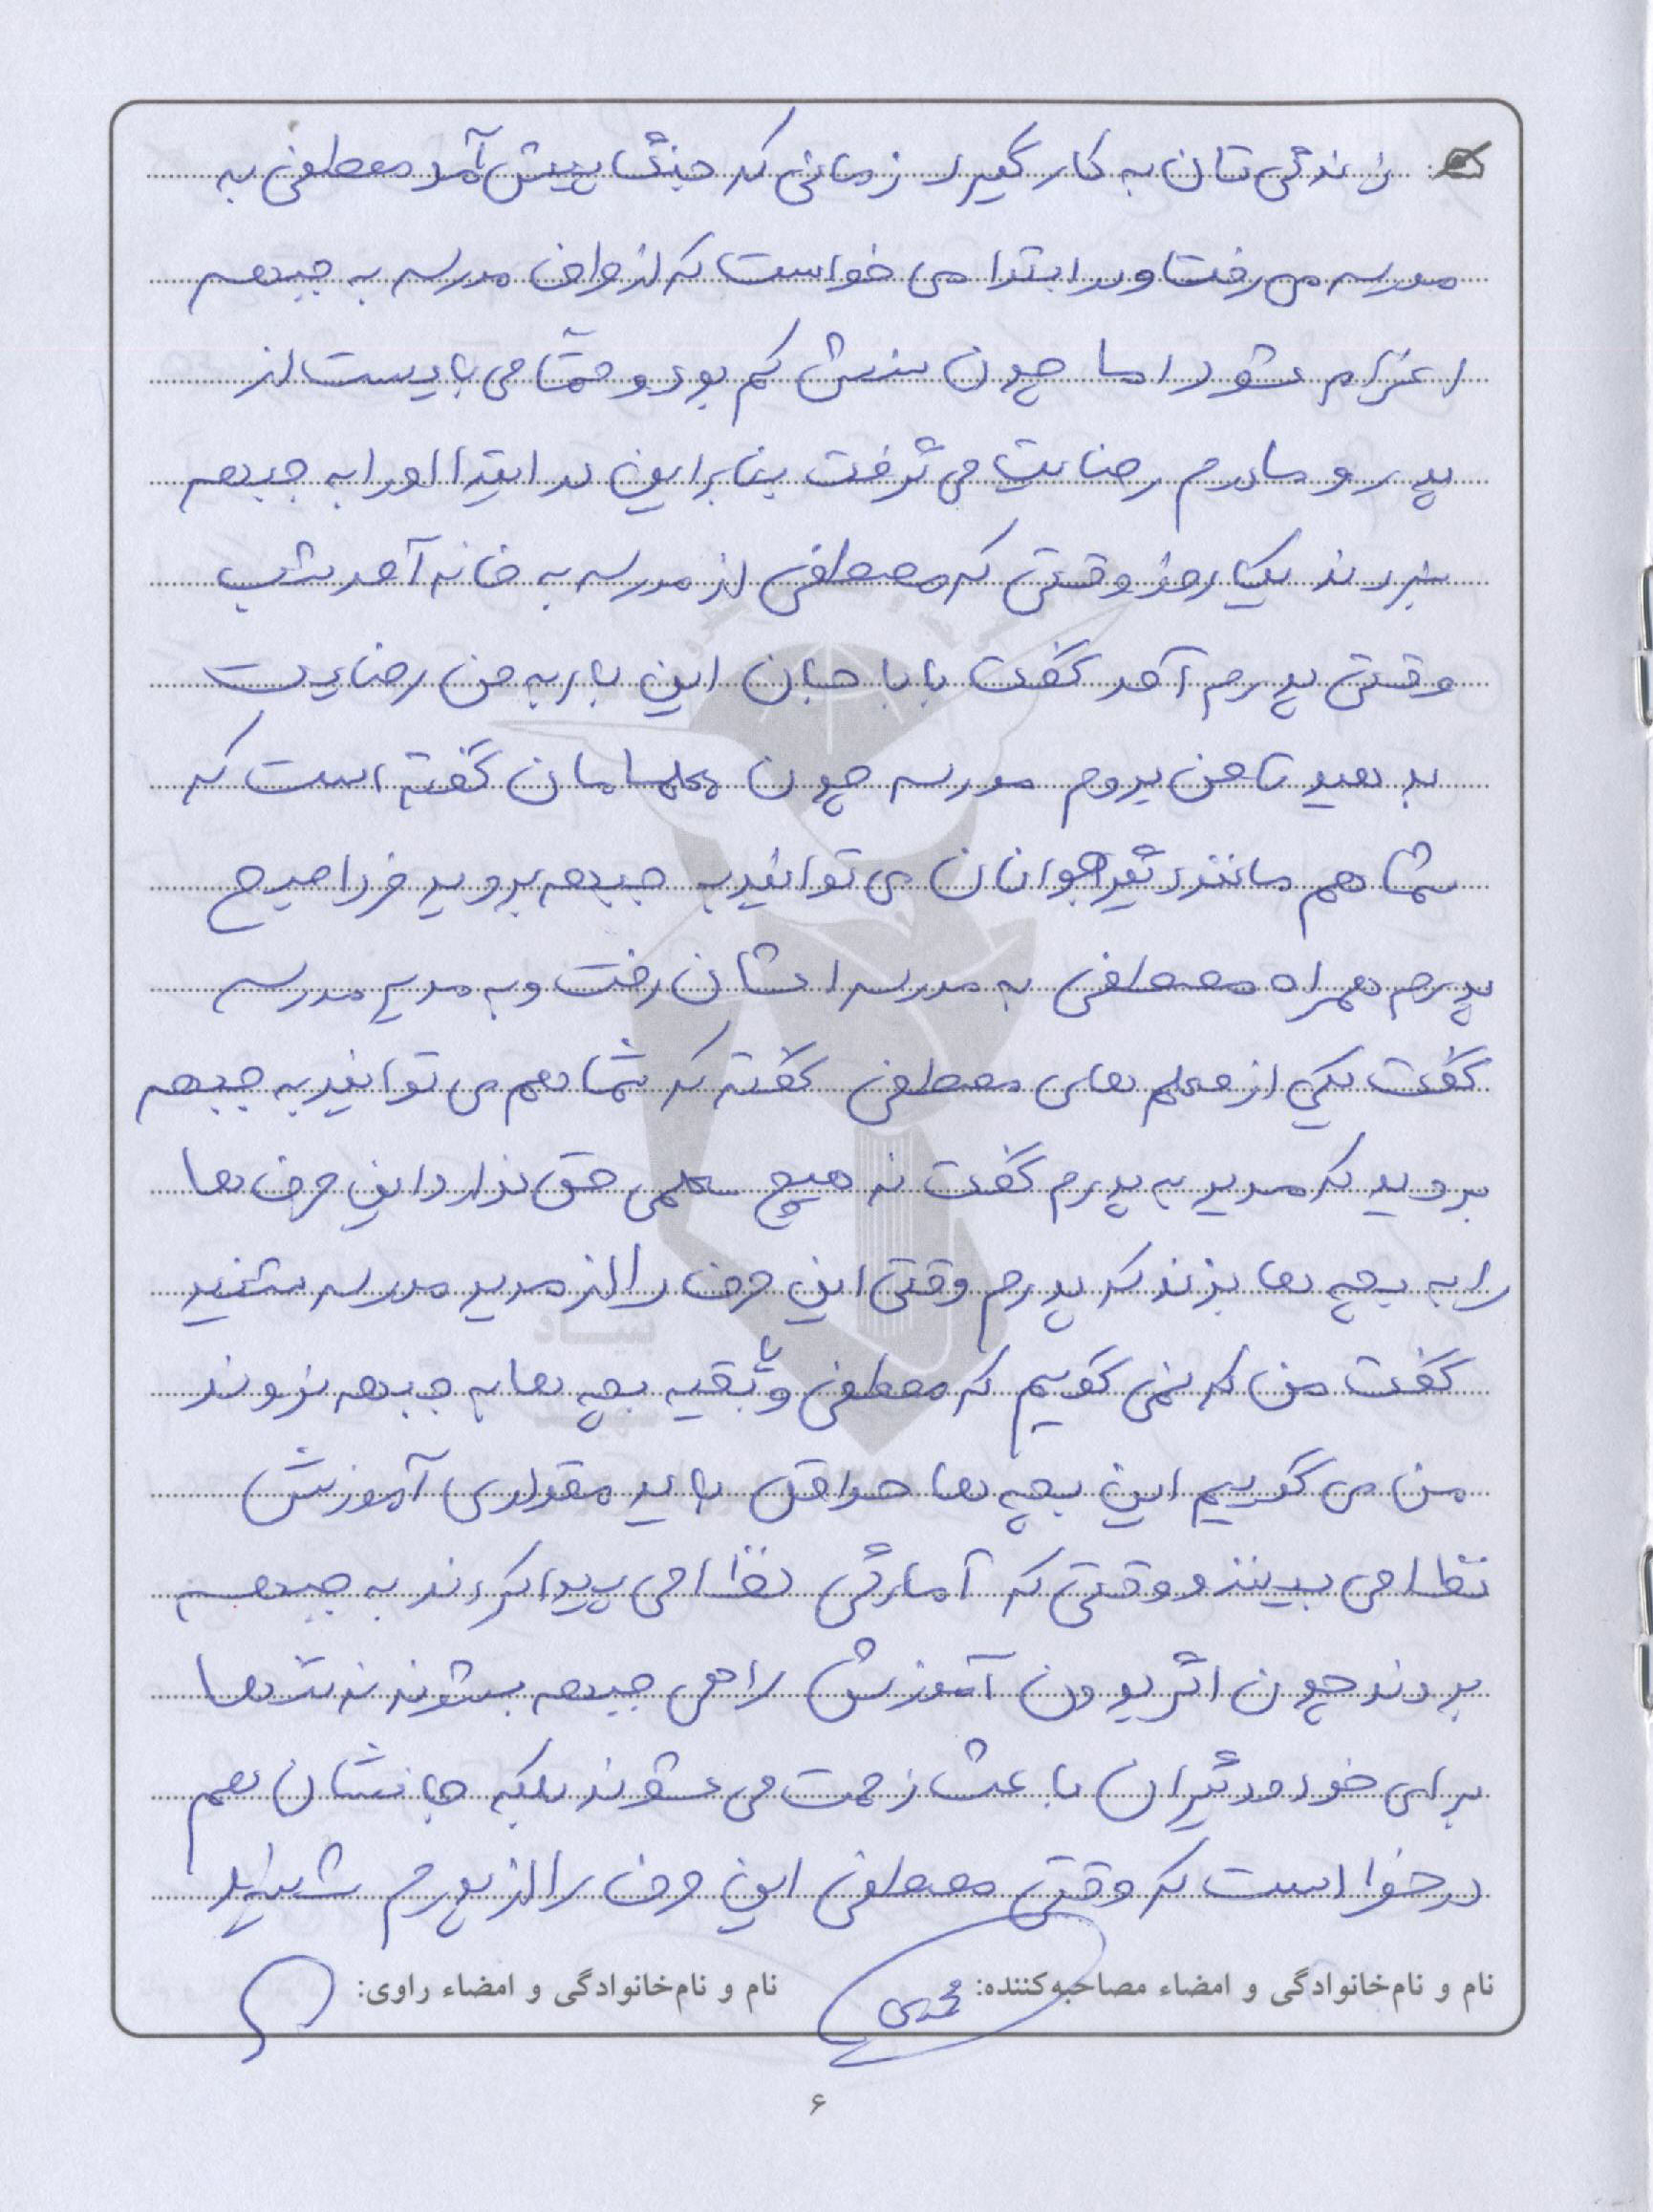 زندگی تان به کار گیرد زمانی که جنگ پیش آمد مصطفی به
مدرسه می رفت و در ابتدا می خواست که از طرف مدرسه به جبهه
اعزام شود اما چون سنش کم بود و حتماً می بایست از
پدر و مادرم رضایت می گرفت بنابراین در ابتدا او را به جبهه
نبردند یک روز وقتی که مصطفی از مدرسه به خانه آمد شب
وقتی پدرم آمد گفت بابا جان این بار به من رضایت
بدهید تا من بروم مدرسه چون معلممان گفته است که
شما هم مانند دیگر جوانان می توانید به جبهه بروید فردا صبح
پدرم همراه مصطفی به مدرسه اشان رفت و به مدیر مدرسه
گفت یکی از معلم های مصطفی گفته که شما هم می توانید به جبهه
بروید که مدیر به پدرم گفت نه هیچ معلمی حق ندارد این حرف ها
را به بچه ها بزند که پدرم وقتی این حرف را از مدیر مدرسه شنید
گفت من که نمی گویم که مصطفی و یا بقیه بچه ها به جبهه نروند
من می گویم این بچه ها حداقل باید مقداری آموزش
نظامی ببینند و وقتی که آمادگی نظامی پیدا کردند به جبهه
بروند چون اگر بدون آموزش راهی جبهه بشوند نه تنها
برای خود و دیگران باعث زحمت می شوند بلکه جانشان هم
در خطر است که وقتی مصطفی این حرف را از پدرم شنید
نام و نام‌خانوادگی و امضاء مصاحبه‌کننده: نام و نام‌خانوادگی و امضاء راوی:
۶